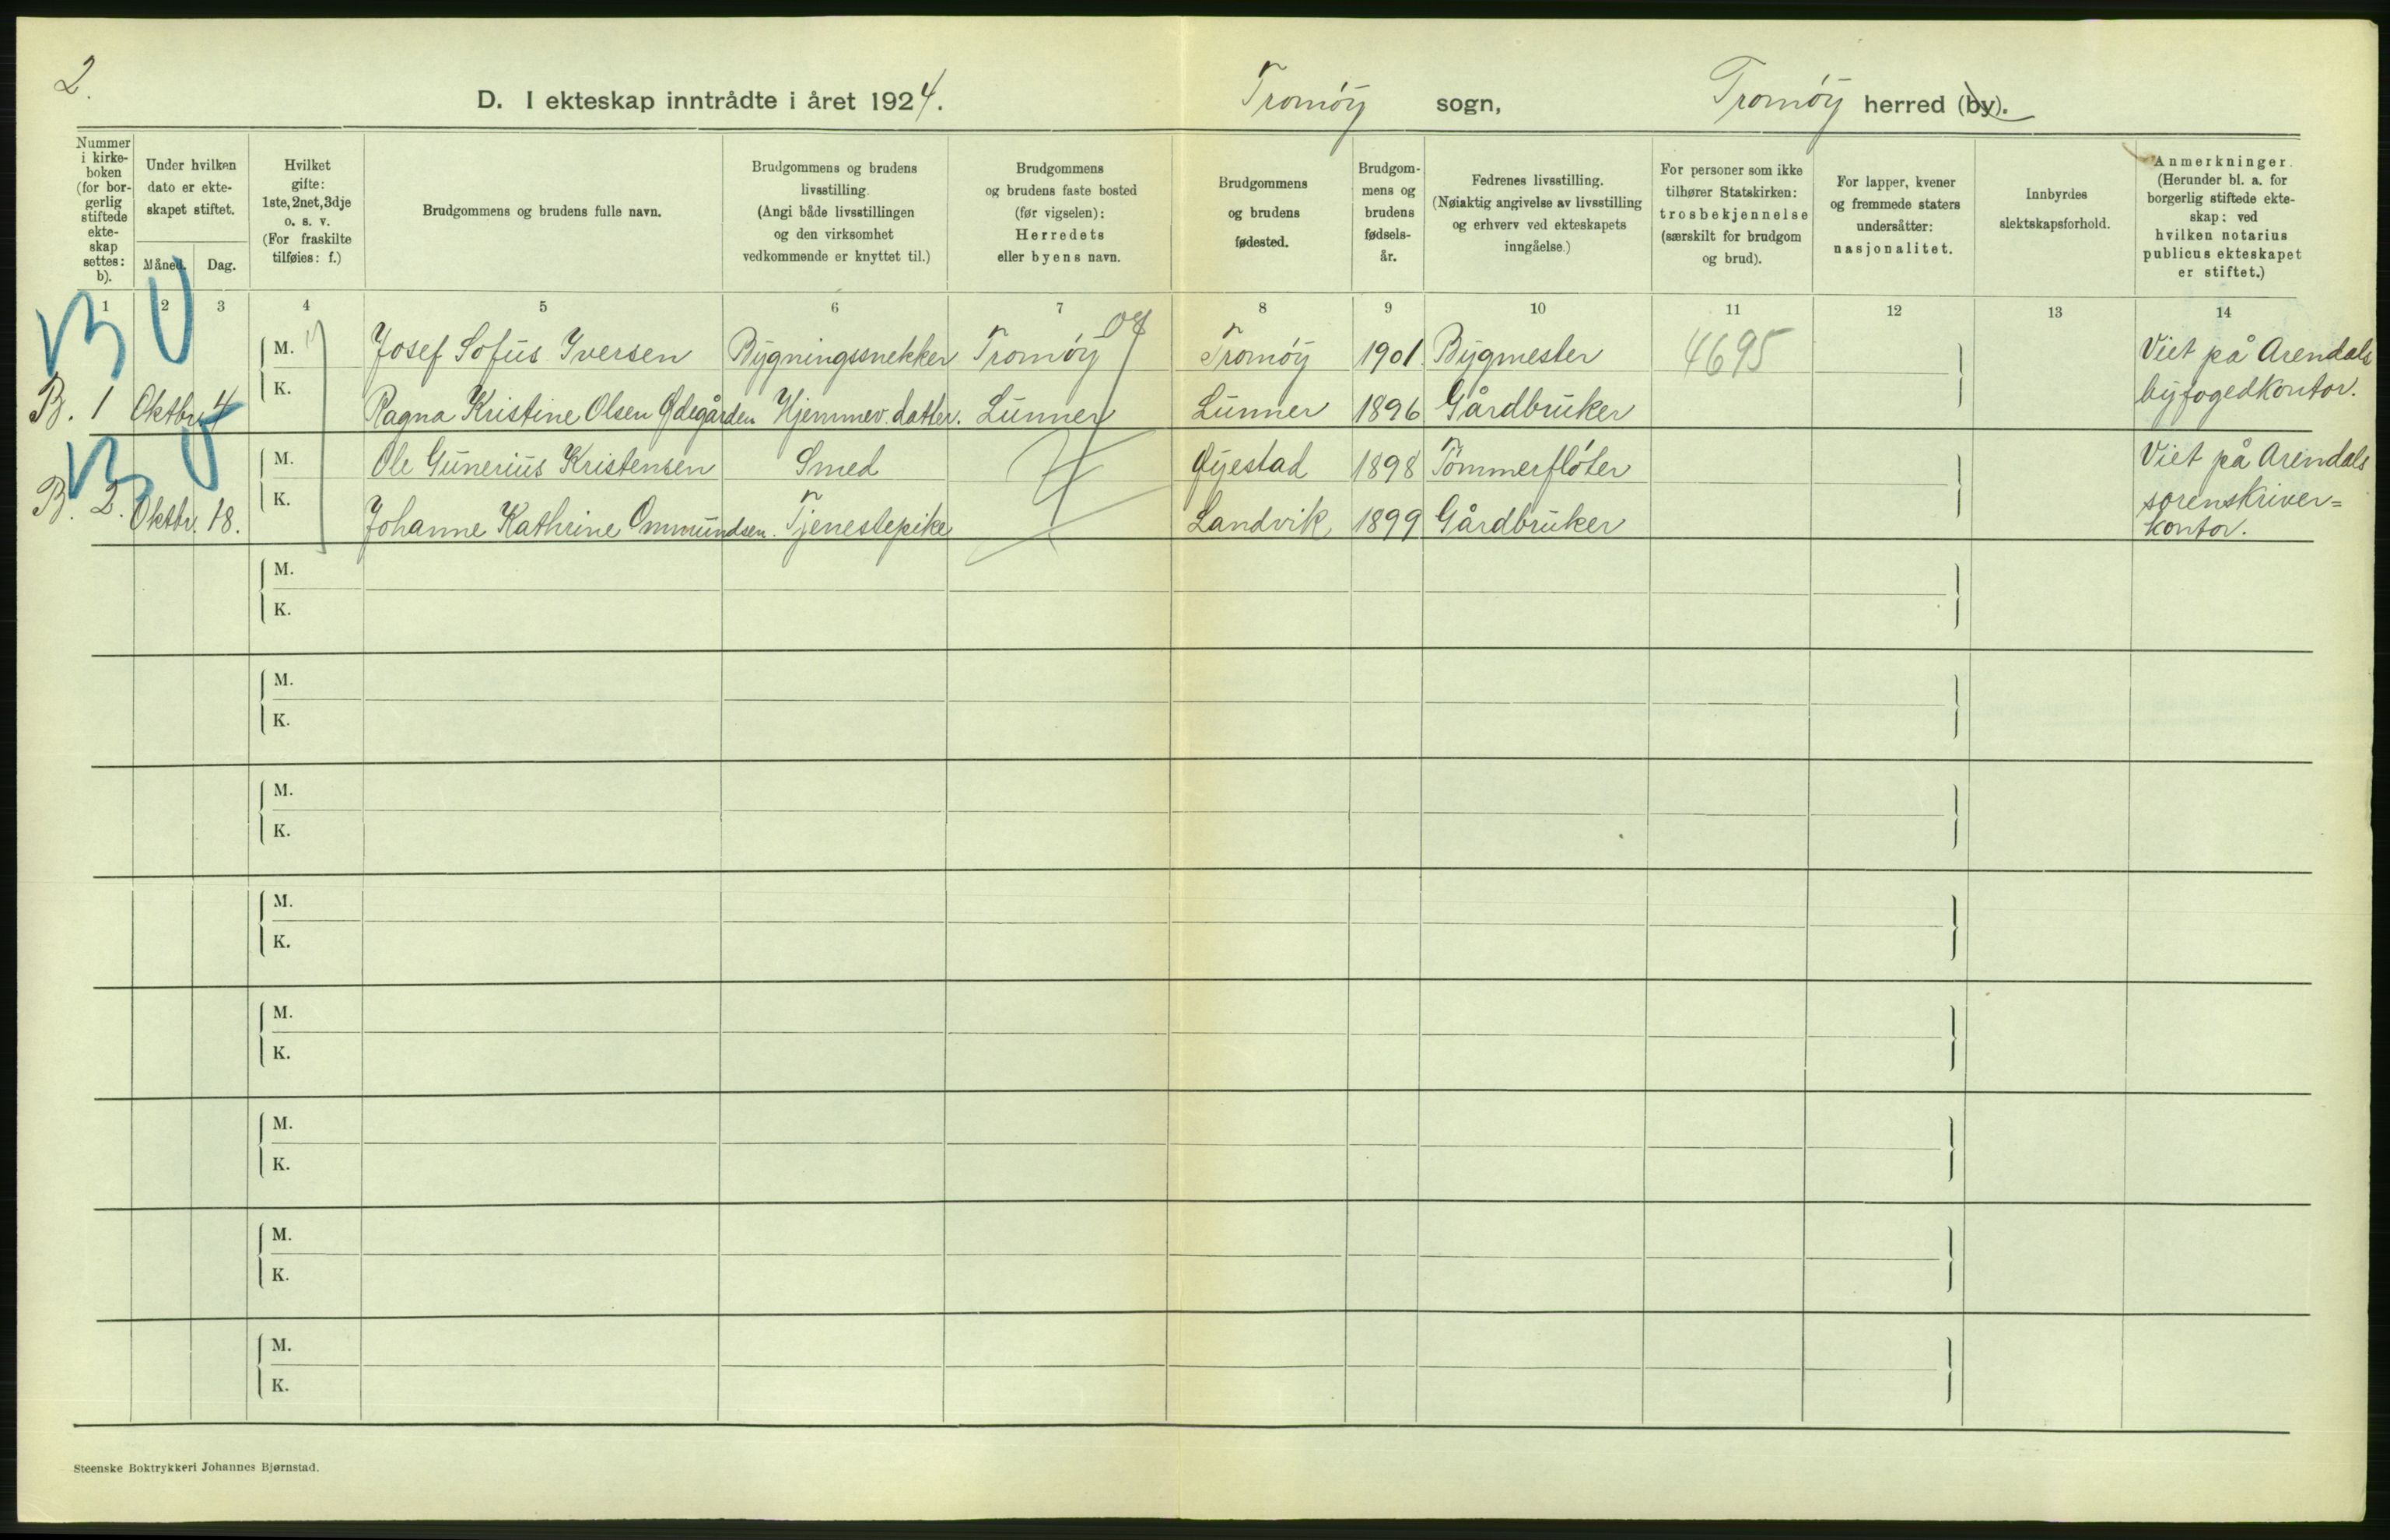 2.
D. I ekteskap inntrådte i året 1924.
Tromöy sogn,
Tromöy herred (by).
Nummer i kirke- boken (for bor- gerlig stiftede ekte- skap settes: b).
Under hvilken dato er ekte- skapet stiftet.
Måned.
Dag.
Hvilket gifte: 1ste, 2net, 3dje o. s. v. (For fraskilte tilføies: f.)
Brudgommens og brudens fulle navn.
Brudgommens og brudens livsstilling. (Angi både livsstillingen og den virksomhet vedkommende er knyttet til.)
Brudgommens og brudens faste bosted (før vigselen): Herredets eller byens navn.
Brudgommens og brudens fødested.
Brudgom- mens og brudens fødsels- år.
Fedrenes livsstilling. (Nøiaktig angivelse av livsstilling og erhverv ved ekteskapets inngåelse.)
For personer som ikke tilhører Statskirken: trosbekjennelse (særskilt for brudgom og brud).
For lapper, kvener og fremmede staters undersåtter: nasjonalitet.
Innbyrdes slektskapsforhold.
Anmerkninger. (Herunder bl. a. for borgerlig stiftede ekte- skap: ved hvilken notarius publicus ekteskapet er stiftet.)
1 2 3 4 5 6 7 8 9 10 11 12 13 14
B U
M. Josef Sofus Iversen Bygningssnekker Tromöy Tromöy 1901 Bygmester 4695 Viet på Arendals
B. 1 Oktbr. 4 K. Ragna Kristine Olsen Ødegården Hjemmev. datter. Lunner Lunner 1896 Gårdbruker byfogedkontor.
B U
M. Ole Gunerius Kristensen Smed Øyestad 1898 Tömmerflöter Viet på Arendals
B. 2. Oktbr. 18. K. Johanne Kathrine Ommundsen. Tjenestepike Landvik 1899 Gårdbruker sorenskriver=
kontor.
M.
K.
M.
K.
M.
K.
M.
K.
M.
K.
M.
K.
M.
K.
M.
K.
Steenske Boktrykkeri Johannes Bjørnstad.